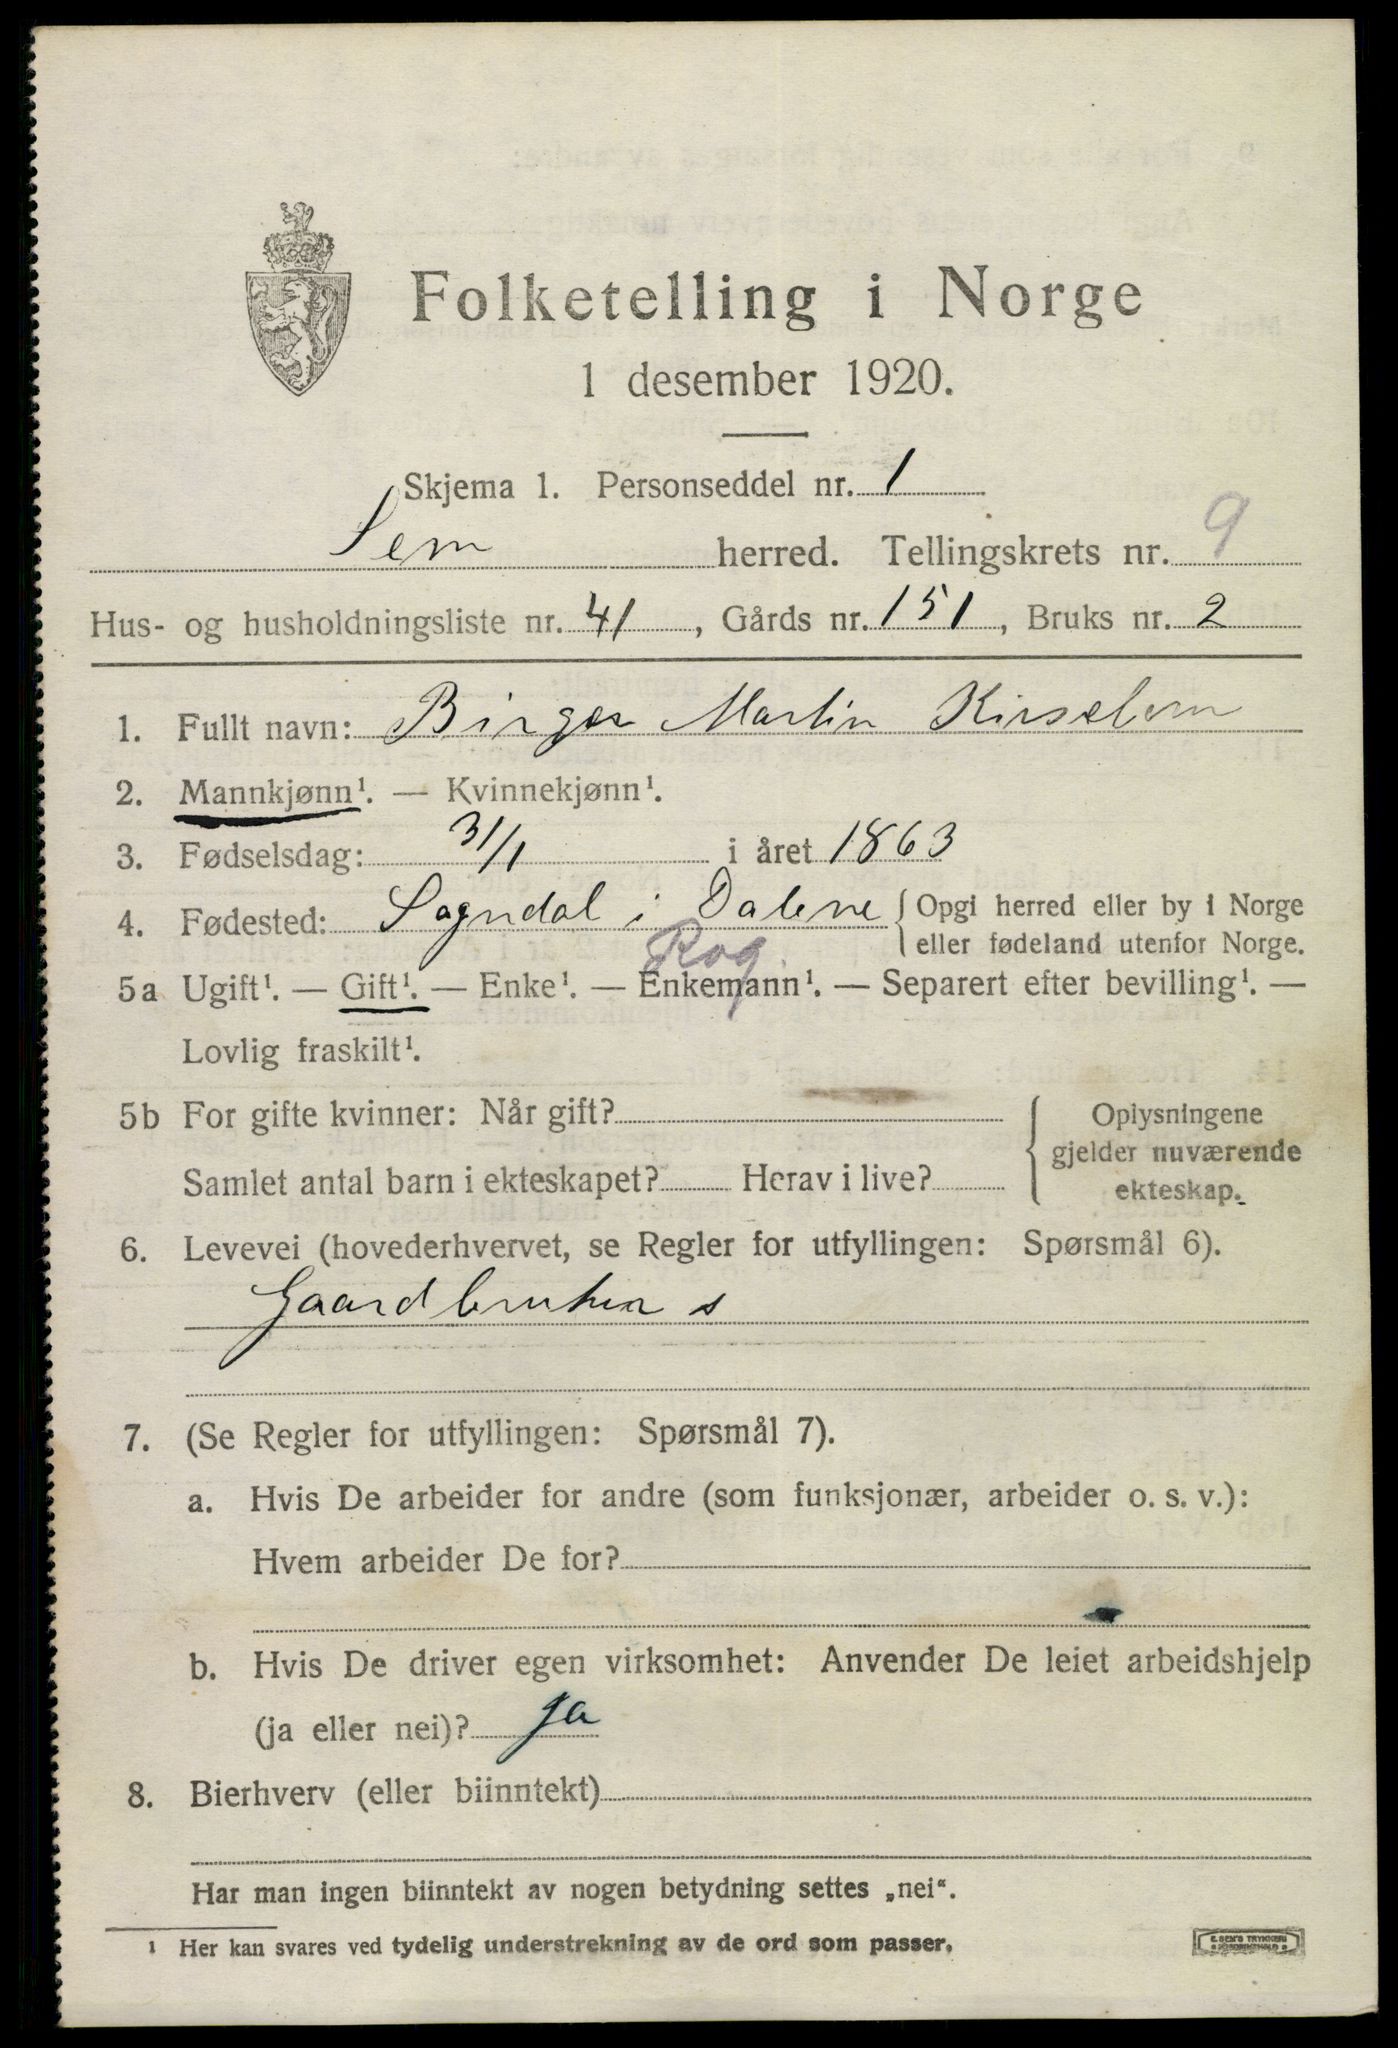 Folketelling i Norge
1 desember 1920.
Skjema 1. Personseddel nr. 1
Sem herred. Tellingskrets nr. 9
Hus- og husholdningsliste nr. 41, Gårds nr. 151, Bruks nr. 2
1. Fullt navn: Birger Martin
2. Mannkjønn¹. — Kvinnekjønn¹.
3. Fødselsdag: 31/1 i året 1863
4. Fødested: Sogndal i Dalene { Opgi herred eller by i Norge
eller fødeland utenfor Norge.
Rog.
5a Ugift¹. — Gift¹. — Enke¹. — Enkemann¹. — Separert efter bevilling¹. —
Lovlig fraskilt¹.
5b For gifte kvinner: Når gift? { Oplysningene
gjelder nuværende
Samlet antal barn i ekteskapet? Herav i live? ekteskap.
6. Levevei (hovederhvervet, se Regler for utfyllingen: Spørsmål 6).
Gaardbruker s
7. (Se Regler for utfyllingen: Spørsmål 7).
a. Hvis De arbeider for andre (som funksjonær, arbeider o. s. v.):
Hvem arbeider De for?
b. Hvis De driver egen virksomhet: Anvender De leiet arbeidshjelp
(ja eller nei)? ja
8. Bierhverv (eller biinntekt)
Har man ingen biinntekt av nogen betydning settes „nei“.
¹ Her kan svares ved tydelig understrekning av de ord som passer.